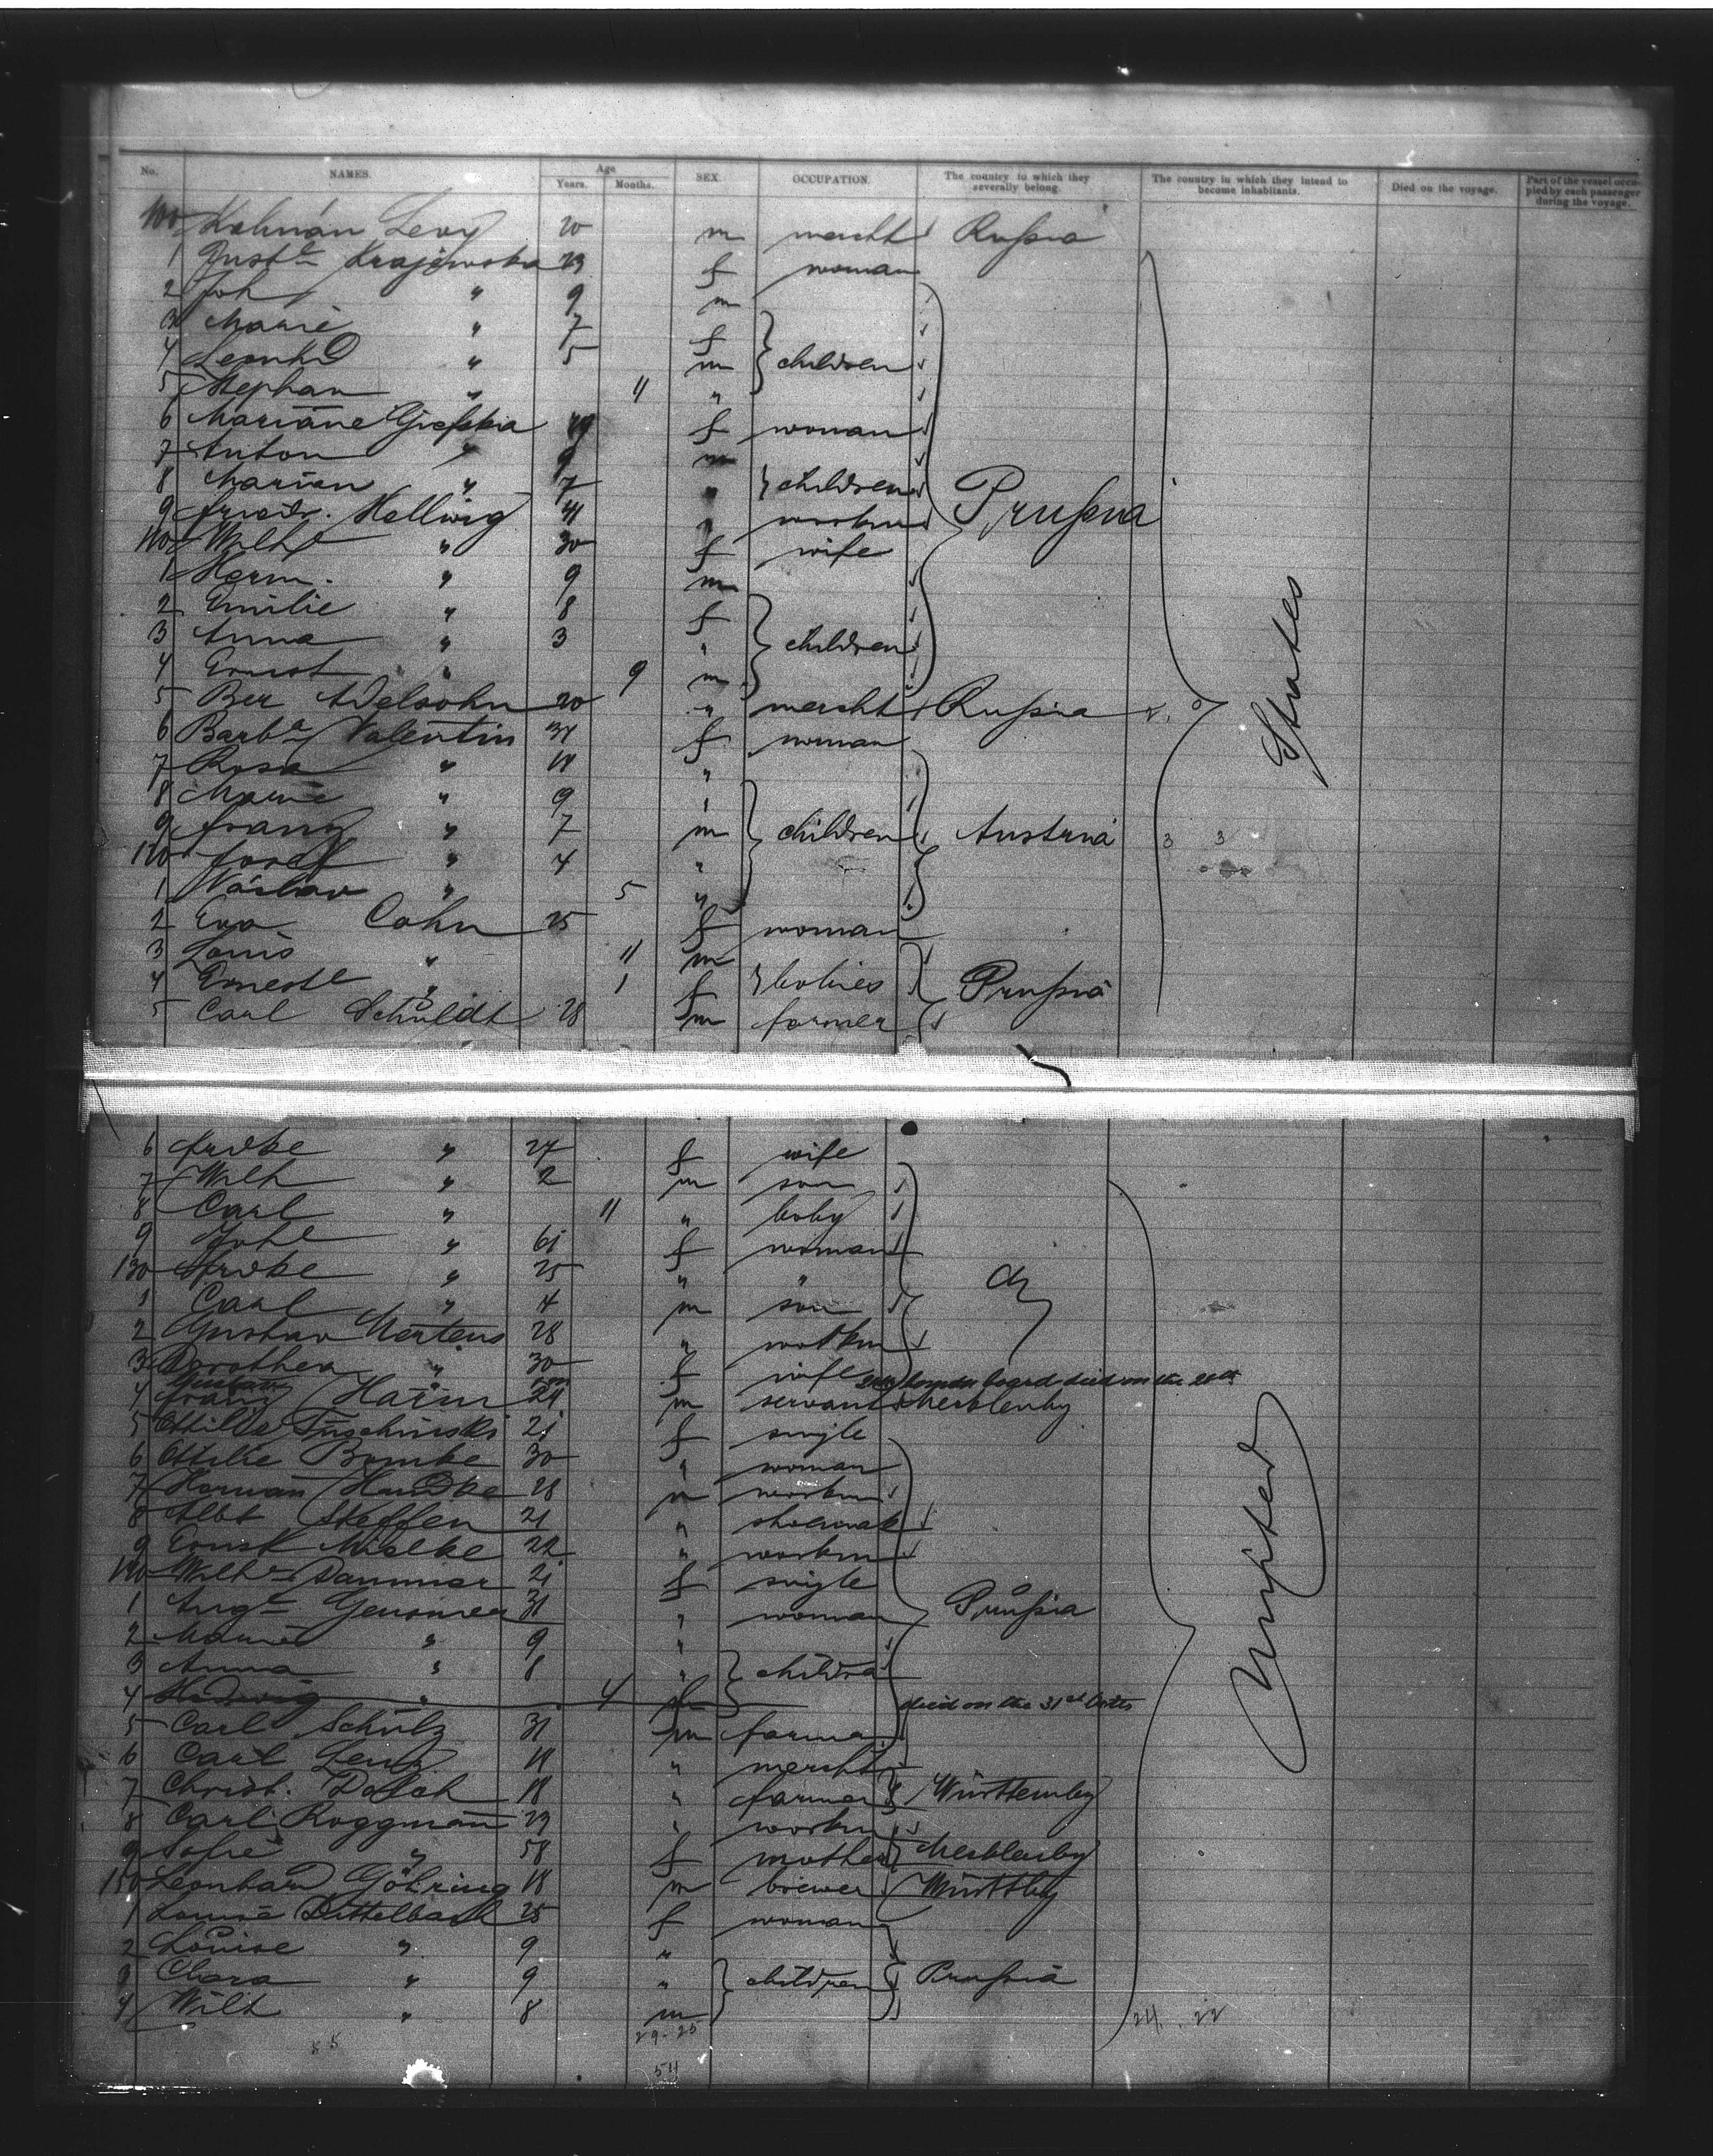 No. NAMES. Age Years. Months. SEX. OCCUPATION. The country to which they severally belong. The country in which they intend to become inhabitants. Died on the voyage. Part of the vessel occupied by each passenger during the voyage.
100 Kalman Levy 20 m mercht Rußia
1 Just.a Krajewska 29 f woman
2 Joh " 9 m
3 Marie " 7 f
4 Leonhd " 5 m children
5 Stephan " 11 "
6 Mariane f woman
7 Anton " 9 m
8 Marian " 7 " children
9 Friedr. Hellwig 41 " workm Prußia
110 Wilhe " 30 f wife
1 Herm. " 9 m
2 Emilie " 8 f
3 Anna " 3 " children
4 Ernst " 9 m States
5 Ber Adelsohn 20 " mercht Rußia
6 Barba Valentin f woman
7 Rosa " "
8 Marie " 9 "
9 Franz " 7 m children Austria 3 3
120 Josef " 4 "
1 Vaclav " 5 "
2 Eva Cohn 25 f woman
3 Louis " 11 m
4 Erneste " 1 f babies Prußia
5 Carl Schuldt 28 m farmer
6 Fredke " 24 f wife
7 Wilh " 2 m son
8 Carl " 11 " baby
9 Johe " 61 f woman
130 Fredke " 25 " "
1 Carl " 4 m son
2 Gustav Mertens 28 " workm
3 Dorothea " 30 f wife
board died on the
4 Franz Haim 24 m servant Mecklenbg
5 Ottilie Tuschinski 21 f single
6 Ottilie Bomke 30 " woman
7 Herman Hundke 28 m workm
8 Albt Steffen 21 " shoemak
9 Ernst Mielke 22 " workm
140 Wilhe Dammer 21 f single
1 Auga 31 " woman Prußia
2 Marie " 9 "
3 Anna " 8 " childrn
4 Hedwig " 4 f died on the 31st Octb
United
5 Carl Schulz 31 m farmer
6 Carl Lenz " mercht
7 Christ. Dolch 18 " farmer Württembg
8 Carl Roggman 29 " workm
9 Sofie " 58 f mother Mecklenbg
150 Leonhard Göhring 18 m brewer Württbg
1 Louise Dittelbach 25 f woman
2 Louise " 9 "
3 Clara " 9 " children Prußia
4 Wilh " 8 m
24. 22
29-25
55
54